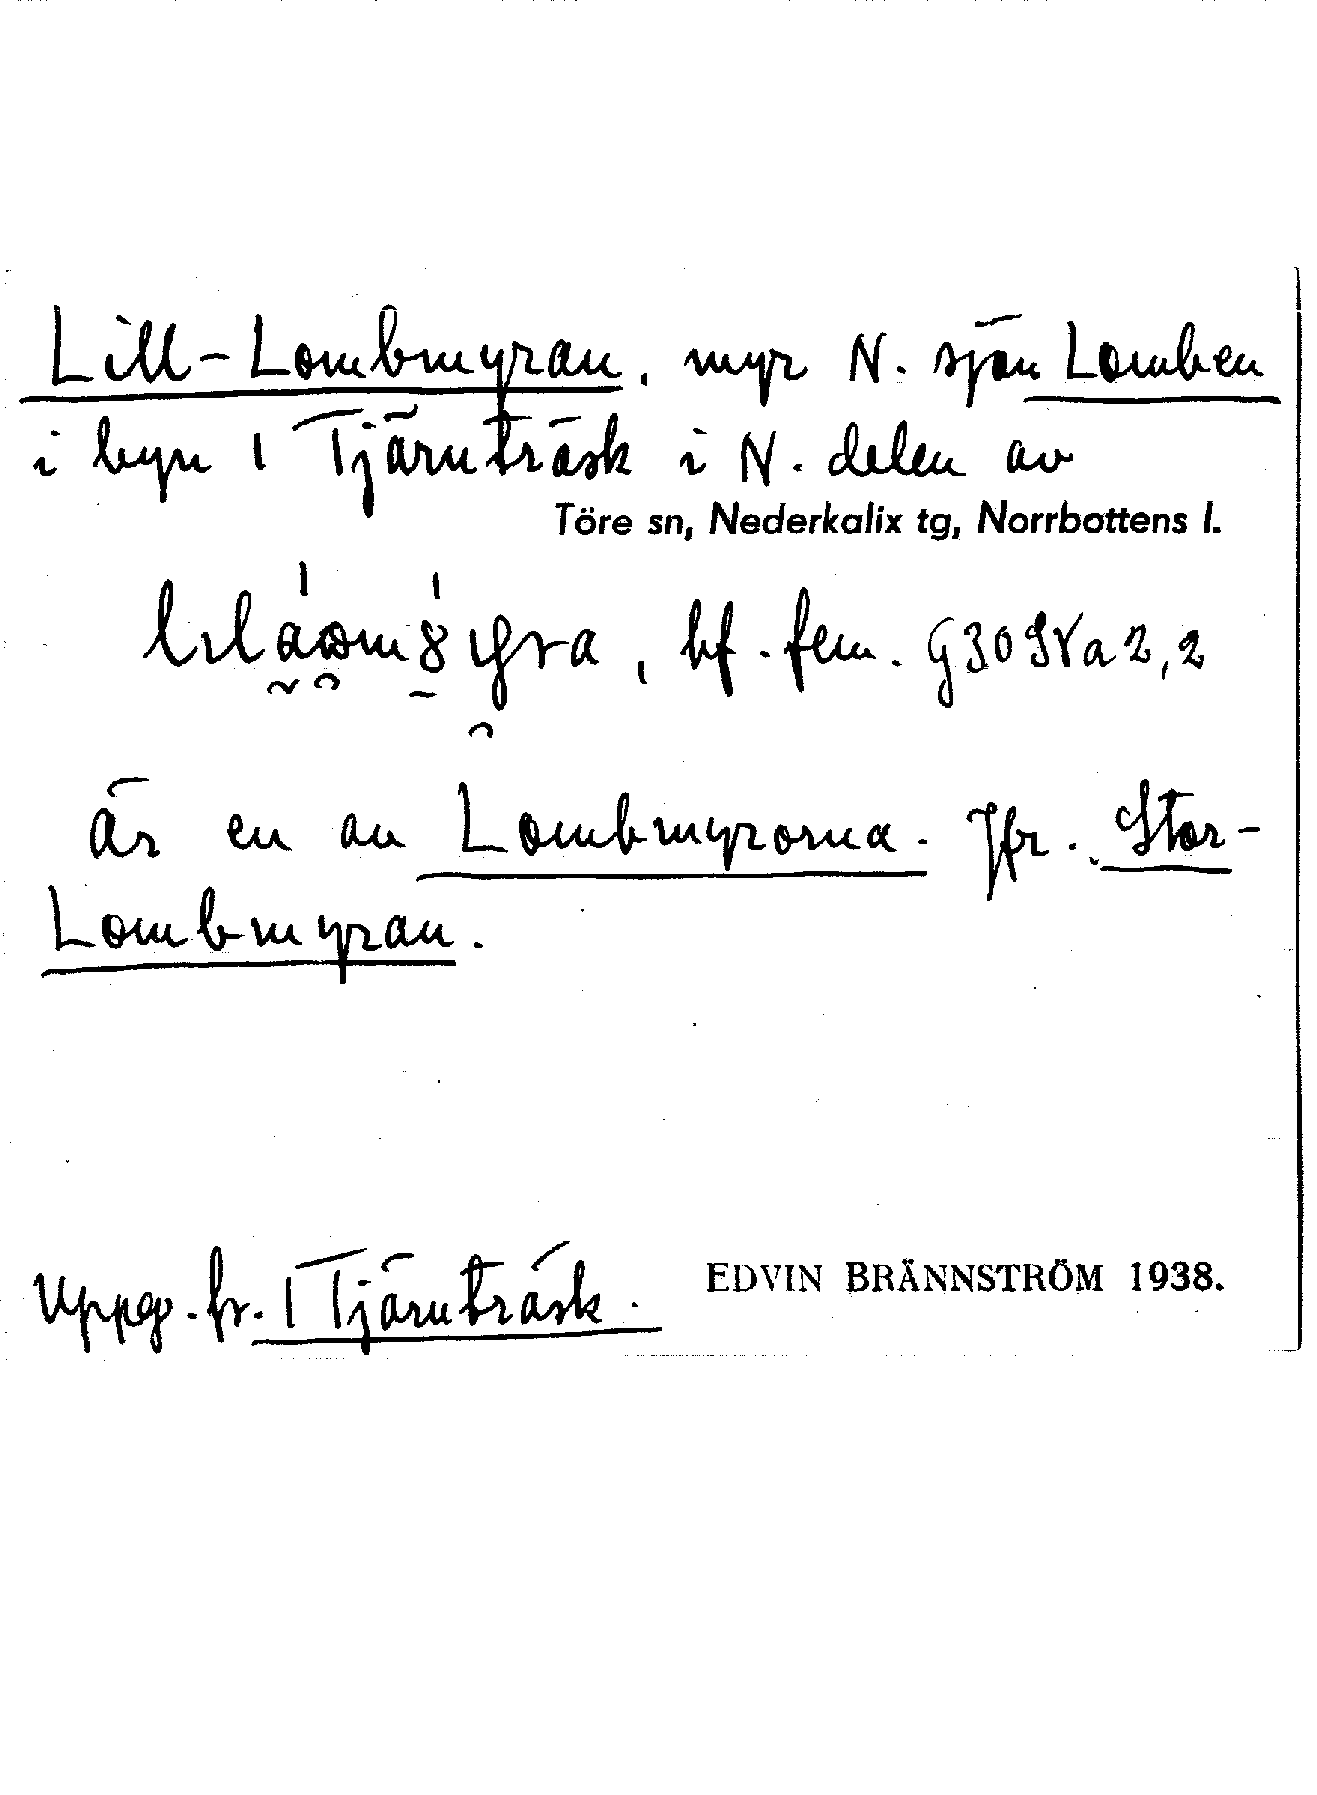 Lill-Lombmyran, myr N. sjön Lomben
i byn 1 Tjärnträsk i N. delen av
Töre sn, Nederkalix tg, Norrbottens l.
, bf. fem.
är en av Lombmyrorna. Jfr. Stor-
Lombmyran.
Uppg. fr. 1 Tjärnträsk. EDVIN BRÄNNSTRÖM 1938.